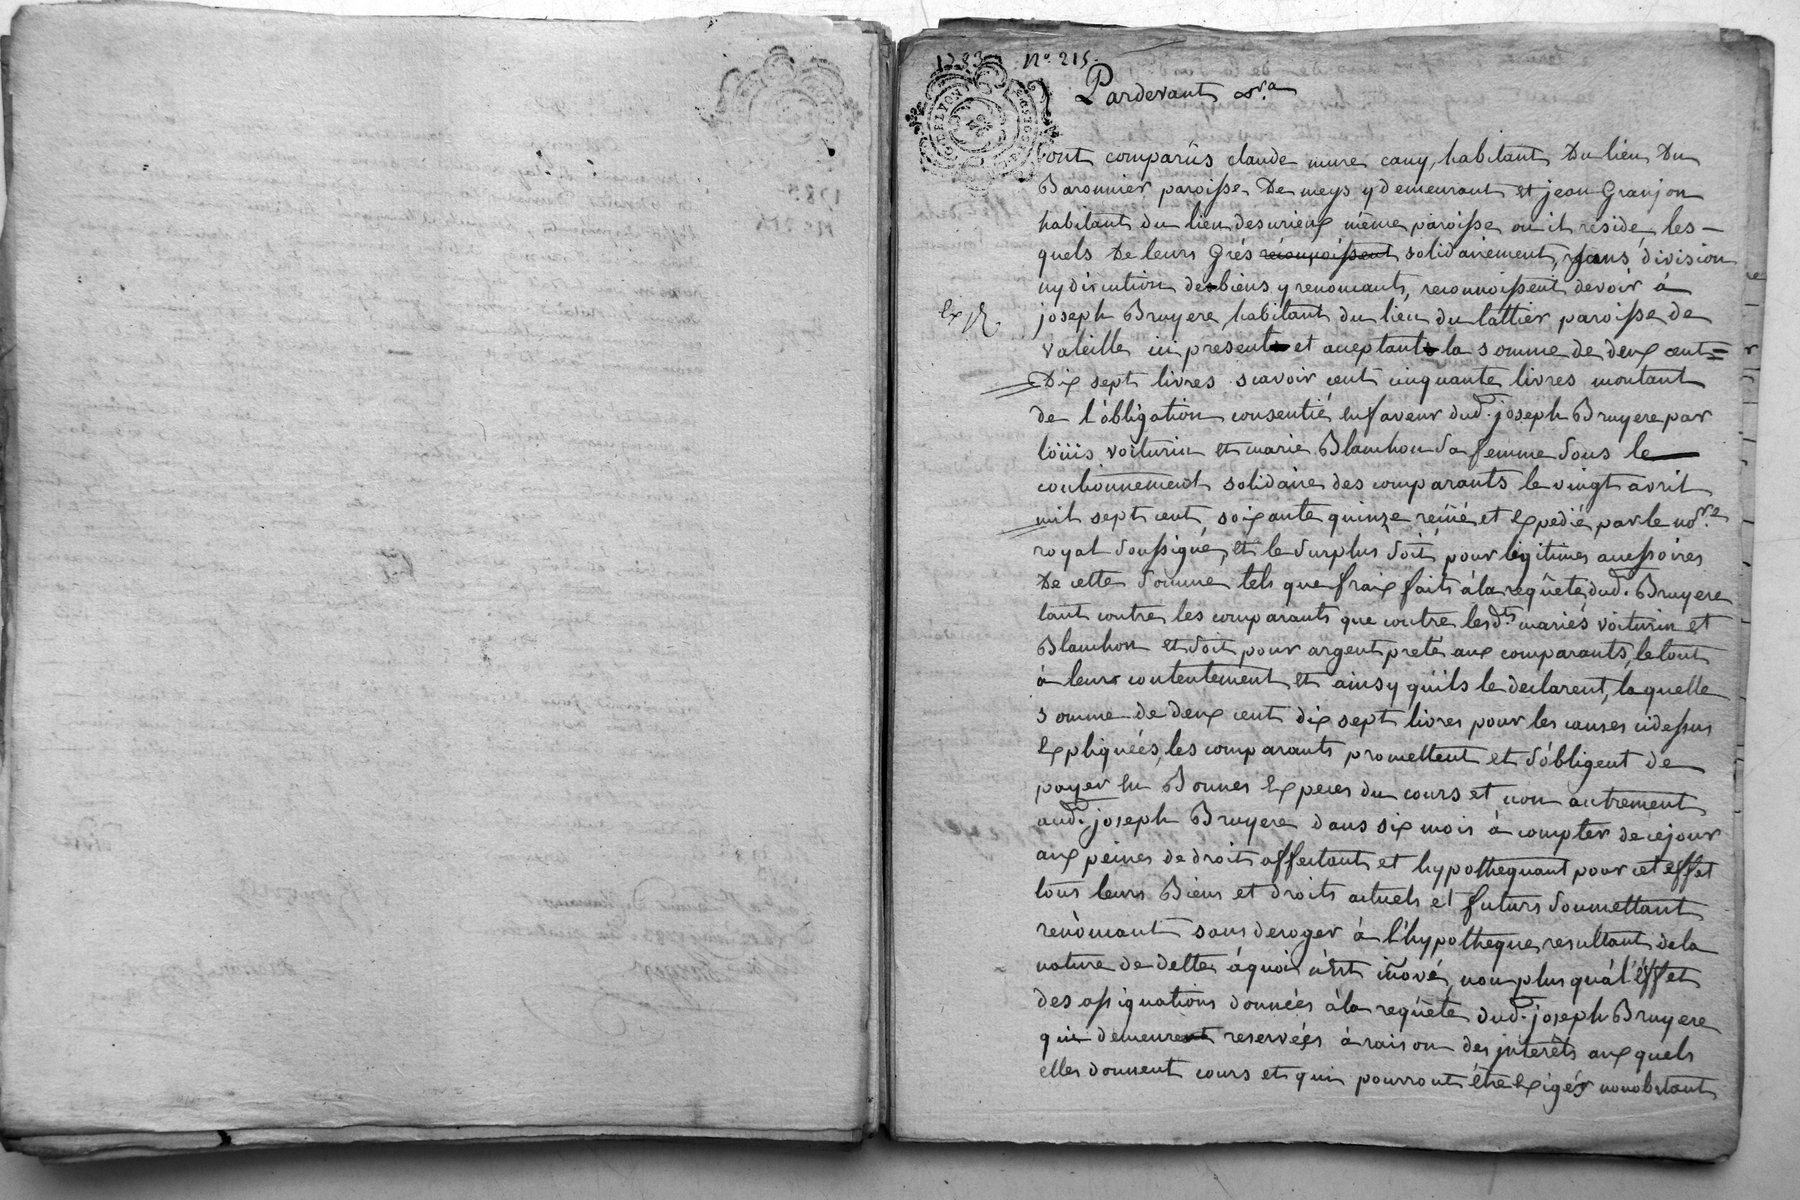 1783 N.º 215.
Pardevant &.ra
sont comparüs claude mure cauy, habitant Du lieu Du
Baronnier paroisse De meys y demeurant et jean Granjon
habitant du lieu desurieux même paroisse ou il réside, les-
quels De leurs Grés reconnoissent solidairement, sans division
ny discution des biens y renoncants, reconnoissent devoir à
Exp.
joseph Bruyere, habitant du lieu du lattier paroisse de
valeille ici present et aceptant la somme de deux cent =
Dix sept livres scavoir cent cinquante livres montant
de l'obligation consentië en faveur dud. joseph Bruyere par
loüis voiturin et marie Blanchon sa femme sous le
cautionnement solidaire des comparants le vingt avril
mil sept cent soixante quinze reçüe et Expedié par le no.re
royal soussigné, et le surplus soit pour légitimes accessoires
De cette somme tels que fraix faits à la reqûete dud. Bruyere
tant contre les comparants que contre lesd.ts mariés voiturin et
Blanchon et soit pour argent preté aux comparants, le tout
à leur contentement et ainsy qu'ils le declarent, laquelle
somme de deux cent dix sept livres pour les causes cidessus
Expliquées, les comparants promettent et s'obligent de
payer En Bonnes Especes du cours et non autrement
aud. joseph Bruyere dans six mois à compter de ce jour
aux peines de droit affectant et hypothequant pour cet effet
tous leurs Biens et droits actuels et futurs soumettant
renoncant sans deroger à l'hypotheque resultant de la
nature de dette à quoi n'Est inové, non plus qu'à l'effet
des assignations données à la reqûete dud. joseph Bruyere
qui demeurent reservées à raison des interêts aux quels
elles donnent cours et qui pourront être Exigés nonobstant